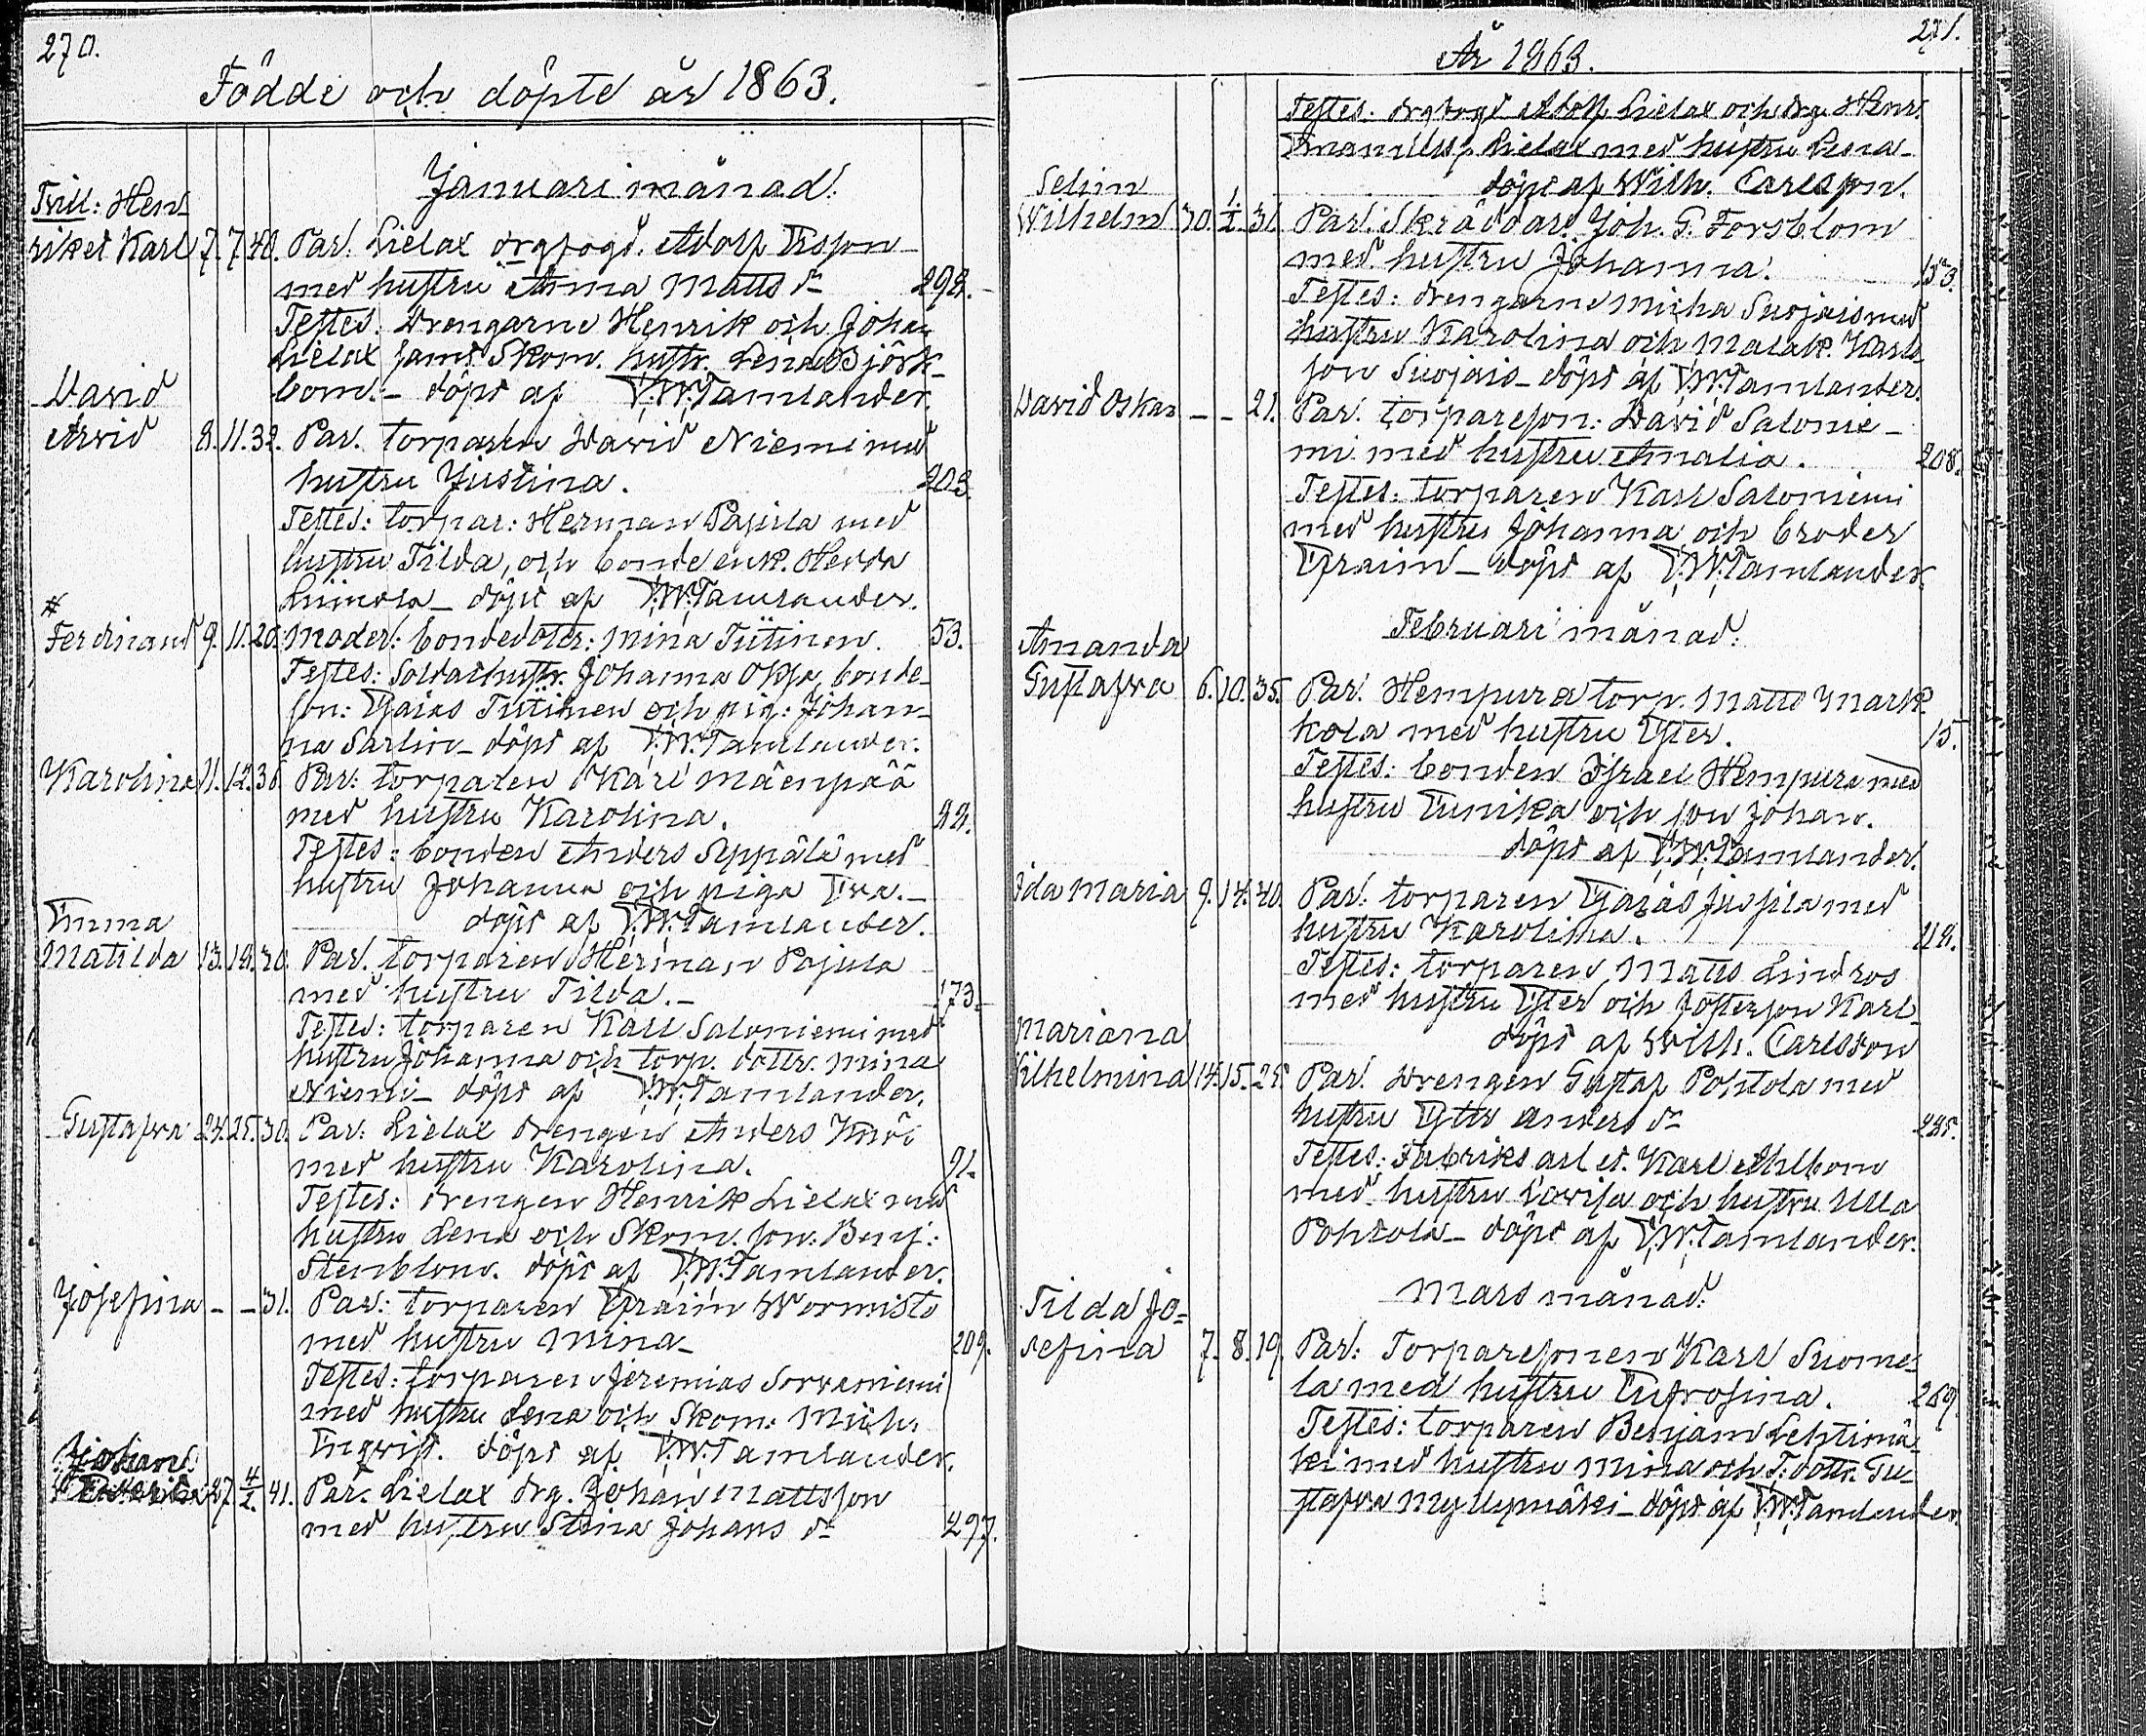 270.
Födde och döpte år 1863.
Januari månad:
Tvill: Hen-
riket Karl 7. 7. 40. Par. Lielax drgfogd. Adolf Ersson
med hustru Anna Matts dr 298.
Testes. Drengarne Henrik och Johan
Lielax samt Skom. hustr. Lena Björk-
bom. - döpt af F.W. Tamlander.
David
Arvid 8. 11. 32. Par. torparen David Niemi med
hustru Justina. 203.
Testes: torpar: Herman Pajula med
hustru Tilda, och bonde enk. Hedda
döpt af F.W. Tamlander.
#
Ferdinand 9. 11. 20. Moder: bondedotr: Mina Tiitinen. 53.
Testes: Soldathustr. Johanna Oksa, bonde-
son: Esaias Tiitinen och pig: Johan-
na Sarlin - döpt af F.W. Tamlander.
Karolina 11. 12. 36. Par: torparen Karl Mäenpää
med hustru Karolina. 22.
Testes: bonden Anders Seppälä med
hustru Johanna och piga Eva. -
döpt af F.W. Tamlander.
Emma
Matilda 13. 18. 30. Par. torparen Herman Pajula
med hustru Tilda. - 173.
Testes: torparen Karl Saloniemi med
hustru Johanna och torp. dottr. Mina
Niemi - döpt af F.W. Tamlander.
Gustafva 24. 25. 30. Par: Lielax drengen Anders
med hustru Karolina. 91.
Testes: drengen Henrik Lielax med
hustru Lena och Skom. son: Benj:
Stenblom. döpt af F.W. Tamlander.
Josefina - - 31. Par: torparen Efraim Wormisto
med hustru Mina - 209.
Testes: torparen Jeremias Sorvaniemi
med hustru Lena och Skom: Mich.
Engvist. döpt af F.W. Tamlander.
Johan
27. 4/2. 41. Par. Lielax drg. Johan Mattsson
med hustru Stina Johans dr 297.
År 1863. 271.
Testes: drgfogd Adolf Lielax och drg. Henr.
Lielax med hustru Lena -
döpt af Wilh. Carlsson.
Selim
Wilhelm 30. 1/2. 31. Par. Skräddar. Joh. G. Forsblom
med hustru Johanna. 153.
Testes: drengarne Micha Suojais med
hustru Karolina och Malak. Karls-
son Suojais - döpt af F.W. Tamlander.
David Oskar - - 21. Par. torpareson: David Salonie-
mi med hustru Amalia. 208.
Testes: torparen Karl Saloniemi
med hustru Johanna och broder
Efraim - döpt af F.W. Tamlander.
Februari månad:
Amanda
Gustafva 6. 10. 35. Par. Hempura torp. Matts Mark-
kola med hustru Ester. 15.
Testes: bonden Israel Hempura med
hustru Eunika och son Johan.
döpt af F.W. Tamlander.
Ida Maria 9. 14. 40. Par: torparen Esaias Jussila med
hustru Karolina. 218.
Testes: torparen Matts Lindros
med hustru Ester och fosterson Karl
döpt af Wilh. Carlsson
Mariana
Vilhelmina 14. 15. 25. Par. drengen Gustaf Pohtola med
hustru Anders dr 285.
Testes: Fabriks arbet. Karl Ahlbom
med hustru Lovisa och hustru Ulla
Pohtola - döpt af F.W. Tamlander.
Mars månad:
Tilda Jo-
sefina 7. 8. 19. Par: Torparesonen Karl Suome-
la med hustru Eufrosina. 269.
Testes: torparen Benjam Lehtimä-
ki med hustru Mina och T: dottr. Gu-
stafva Myllymäki - döpt af F.W. Tamlander.